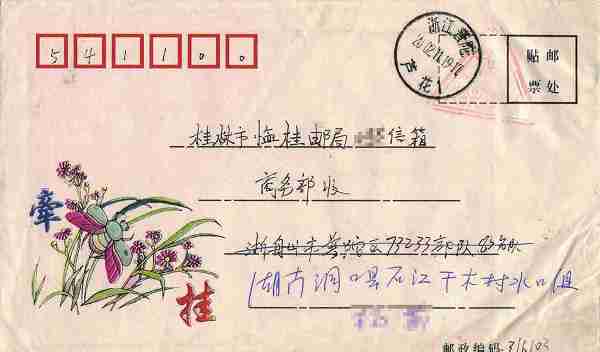 541100
浙江普陀
2002.11.19.17
芦花
贴邮
票处
桂林市临桂邮局 信箱
商务部收
浙舟山市普陀区73233部队
牵
湖南洞口县石江千木村水口组
挂
邮政编码